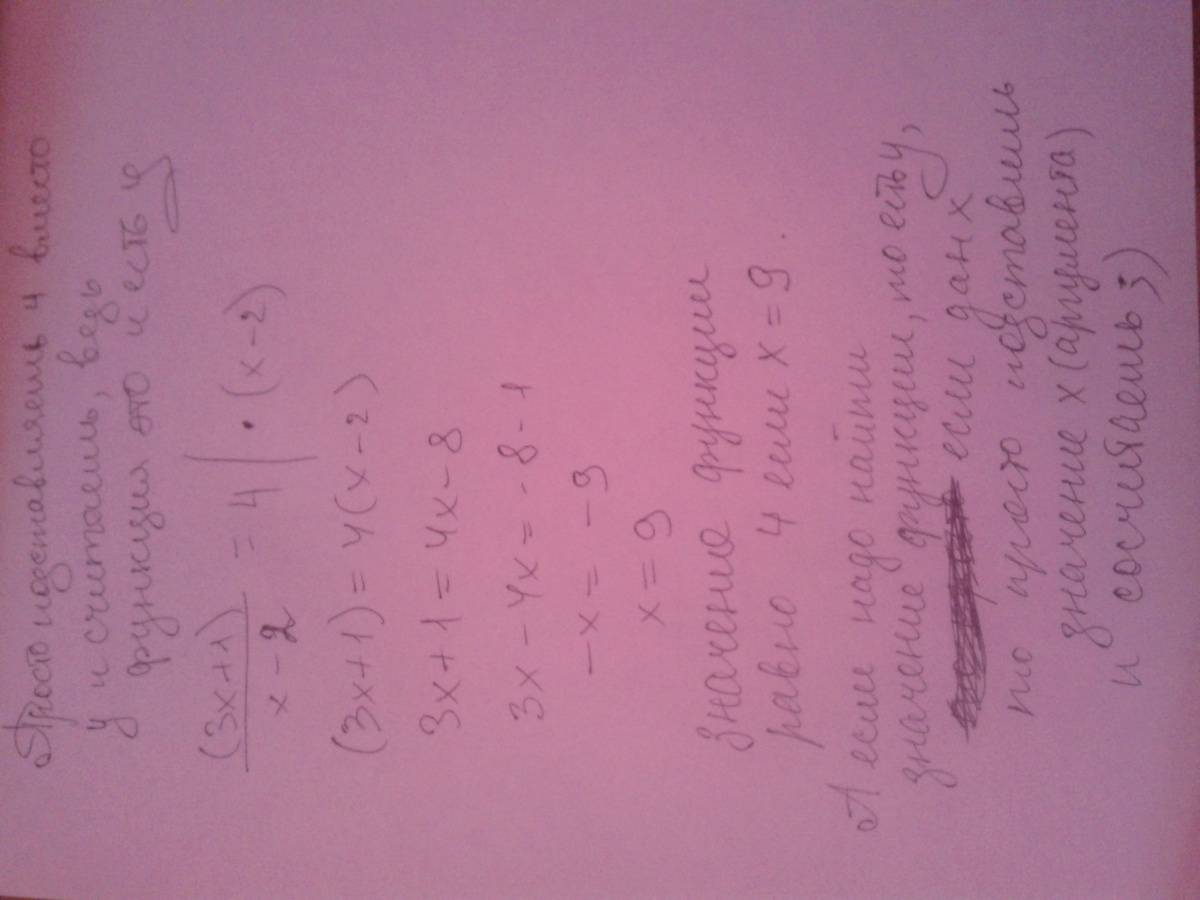 Просто подставляешь 4 вместо
y и считаешь, ведь
функция это и есть y
(3x+1)/(x-2) = 4 | • (x-2)
(3x+1) = 4(x-2)
3x+1 = 4x-8
3x-4x = -8-1
-x = -9
x = 9
значение функции
равно 4 если x = 9.
А если надо найти
значение функции, то есть y,
если дан x
то просто подставишь
значение x (аргумента)
и сосчитаешь ;)